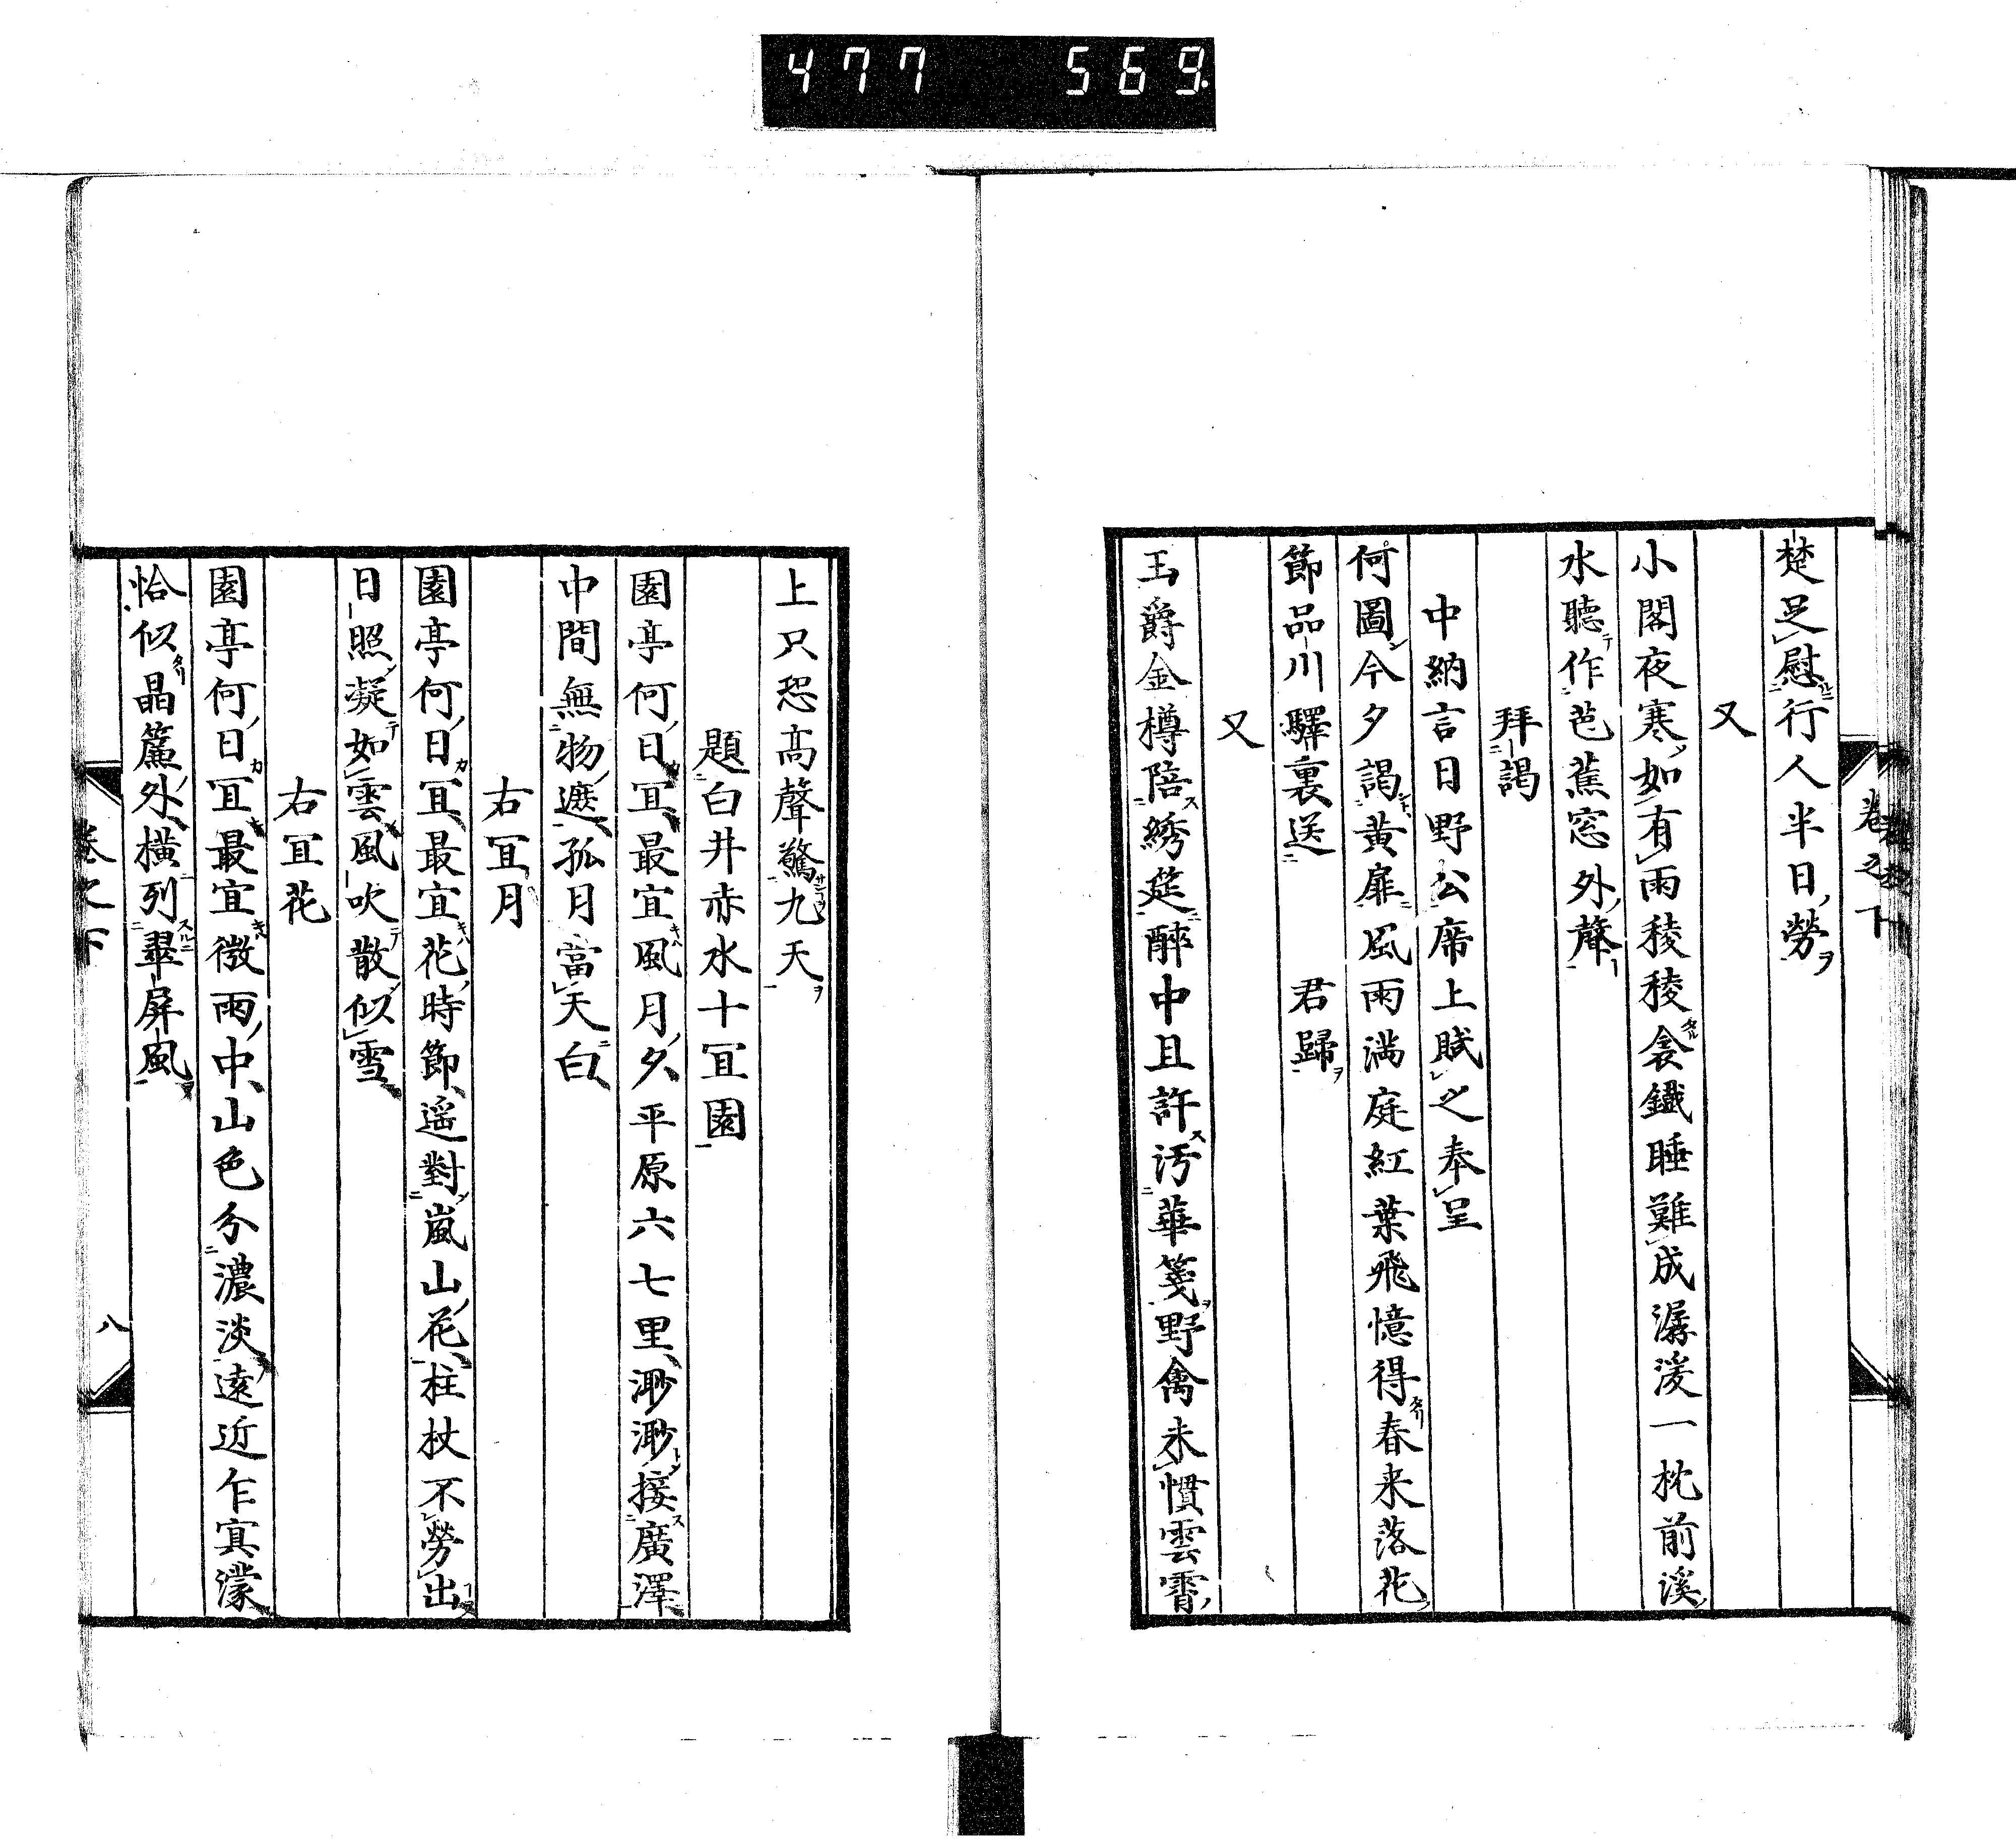 477 569.
卷之下
楚足慰行人半日勞
又
小閣夜寒如有雨稜稜衾鐵睡難成潺湲一枕前溪
水聽作芭蕉窓外聲
拜謁
中納言日野公席上賦之奉呈
何圖今夕謁黃扉風雨滿庭紅葉飛憶得春来落花
節品川驛裏送　君歸
又
玉爵金樽陪綉筵醉中且許汚華箋野禽未慣雲霄
上只恐高聲驚九天
題白井赤水十冝園
園亭何日冝最宜風月夕平原六七里渺渺接廣澤
中間無物遮孤月當天白
右冝月
園亭何日冝最宜花時節遥對嵐山花柱杖不勞出
日照凝如雲風吹散似雪
右冝花
園亭何日冝最宜微雨中山色分濃淡遠近乍冥濛
恰似晶簾外橫列翠屏風
卷之下
八